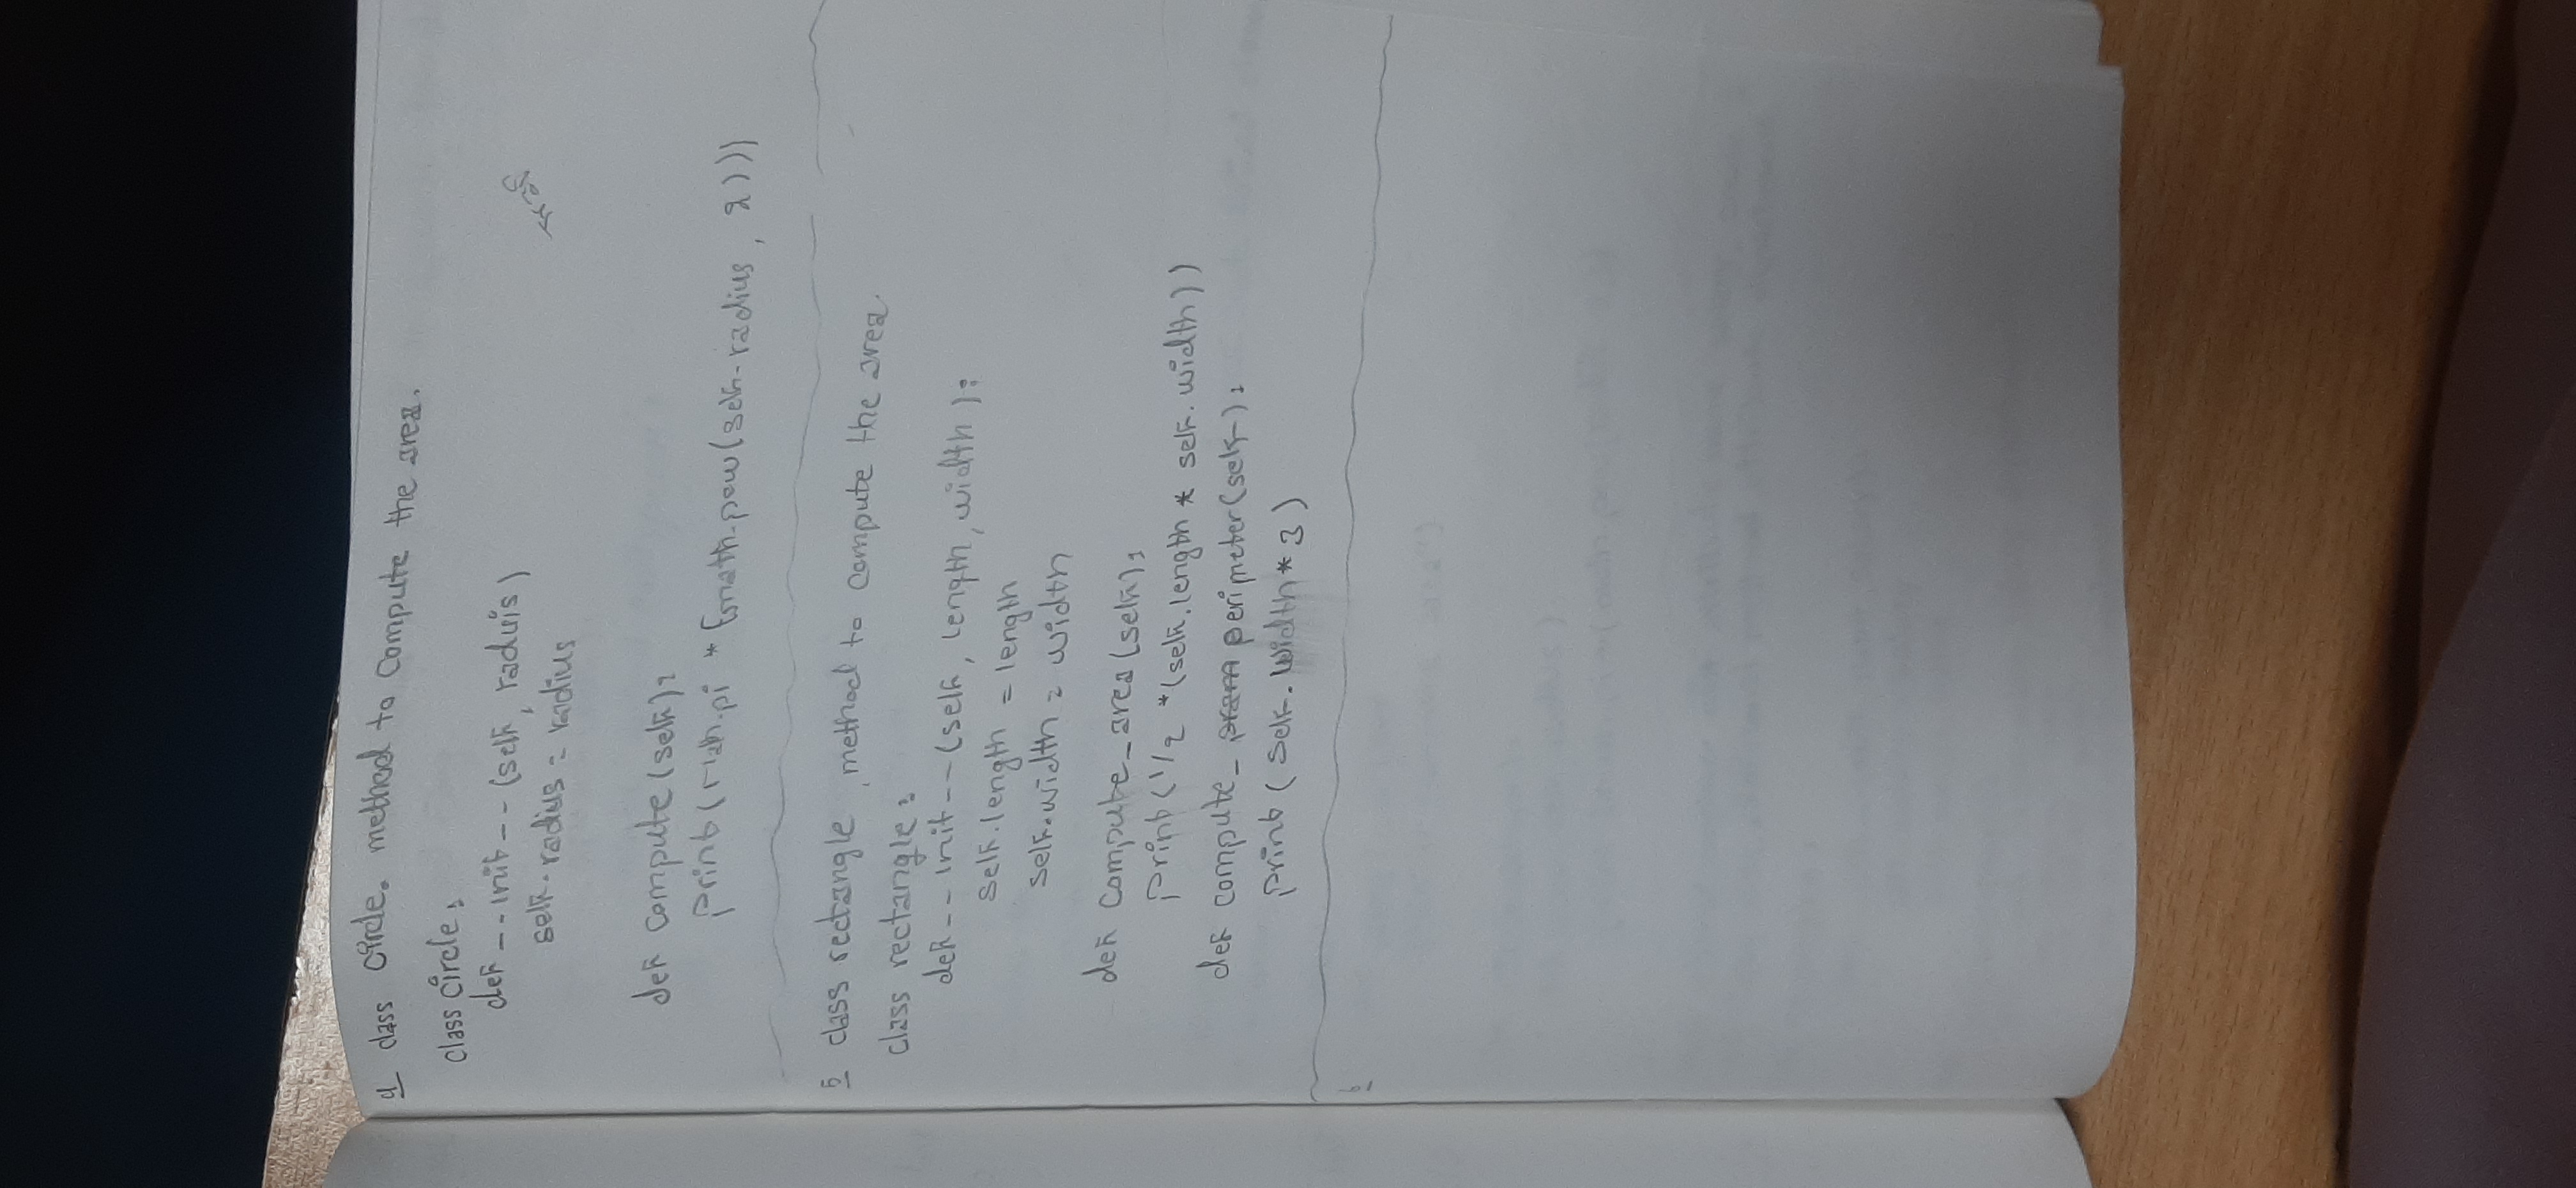 4 class circle. method to compute the area.
class circle:
def __init__(self, raduis)
self.radius = radius
def compute(self):
print(math.pi * (math.pow(self.radius, 2)))
5 class rectangle, method to compute the area.
class rectangle:
def __init__(self, length, width):
self.length = length
self.width = width
def compute_area(self):
print(1/2 *(self.length * self.width))
def compute_perimeter(self):
print(self.width*3)
6